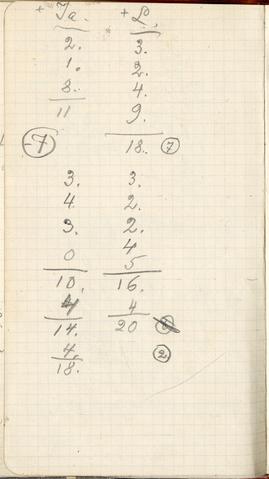 + Ja. + L.
2. 3.
1. 2.
8. 4.
11 9.
-7 18. 7
3. 3.
4. 2.
3. 2.
0 4
5
10. 16.
4 4
14. 20
4. 2
18.